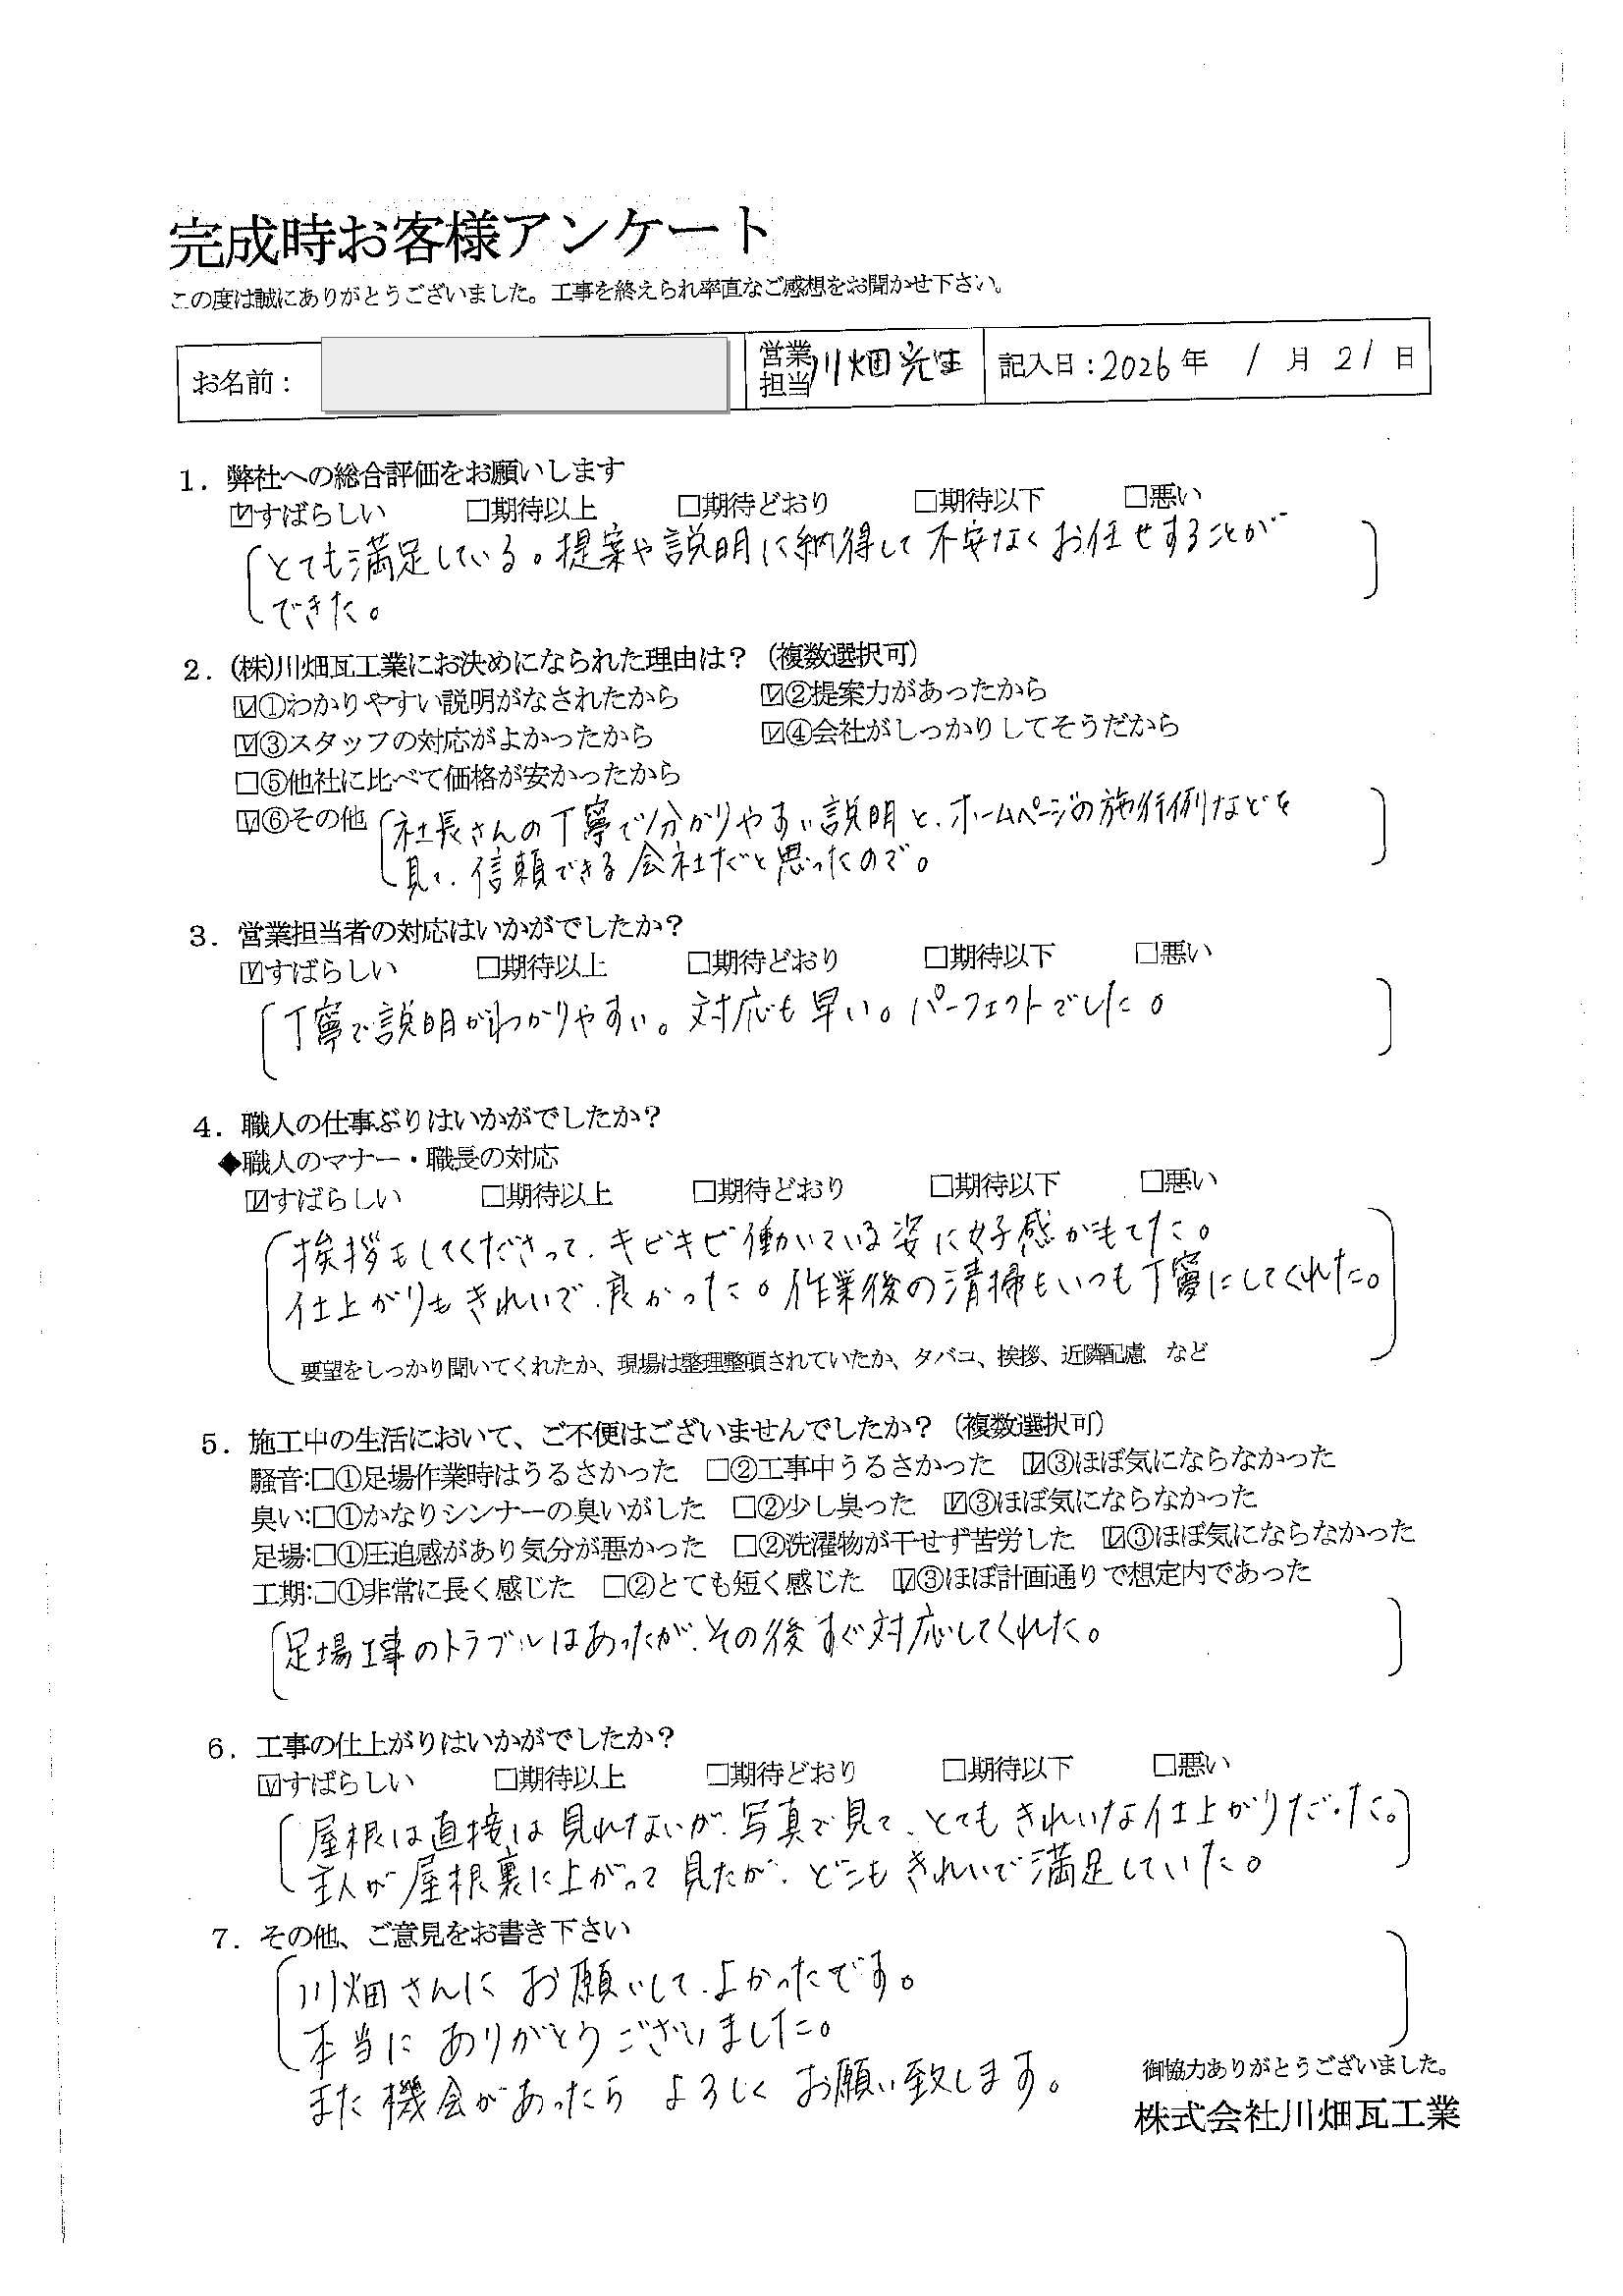 完成時お客様アンケート
この度は誠にありがとうございました。工事を終えられ率直なご感想をお聞かせ下さい。
お名前： 営業担当 川畑 記入日：2026年 1月 21日
1．弊社への総合評価をお願いします
☑すばらしい □期待以上 □期待どおり □期待以下 □悪い
とても満足している。提案や説明に納得して不安なくお任せすることが
できた。
2．(株)川畑瓦工業にお決めになられた理由は？（複数選択可）
☑①わかりやすい説明がなされたから ☑②提案力があったから
☑③スタッフの対応がよかったから ☑④会社がしっかりしてそうだから
□⑤他社に比べて価格が安かったから
☑⑥その他 社長さんの丁寧で分かりやすい説明と、ホームページの施行例などを
見て、信頼できる会社だと思ったので。
3．営業担当者の対応はいかがでしたか？
☑すばらしい □期待以上 □期待どおり □期待以下 □悪い
丁寧で説明がわかりやすい。対応も早い。パーフェクトでした。
4．職人の仕事ぶりはいかがでしたか？
◆職人のマナー・職長の対応
☑すばらしい □期待以上 □期待どおり □期待以下 □悪い
挨拶をしてくださって、キビキビ働いている姿に好感がもてた。
仕上がりもきれいで、良かった。作業後の清掃もいつも丁寧にしてくれた。
要望をしっかり聞いてくれたか、現場は整理整頓されていたか、タバコ、挨拶、近隣配慮 など
5．施工中の生活において、ご不便はございませんでしたか？（複数選択可）
騒音:□①足場作業時はうるさかった □②工事中うるさかった ☑③ほぼ気にならなかった
臭い:□①かなりシンナーの臭いがした □②少し臭った ☑③ほぼ気にならなかった
足場:□①圧迫感があり気分が悪かった □②洗濯物が干せず苦労した ☑③ほぼ気にならなかった
工期:□①非常に長く感じた □②とても短く感じた ☑③ほぼ計画通りで想定内であった
足場工事のトラブルはあったが、その後すぐ対応してくれた。
6．工事の仕上がりはいかがでしたか？
☑すばらしい □期待以上 □期待どおり □期待以下 □悪い
屋根は直接は見れないが、写真で見て、とてもきれいな仕上がりだった。
主人が屋根裏に上がって見たが、どこもきれいで満足していた。
7．その他、ご意見をお書き下さい
川畑さんにお願いして、よかったです。
本当にありがとうございました。
また機会があったらよろしくお願い致します。
御協力ありがとうございました。
株式会社川畑瓦工業